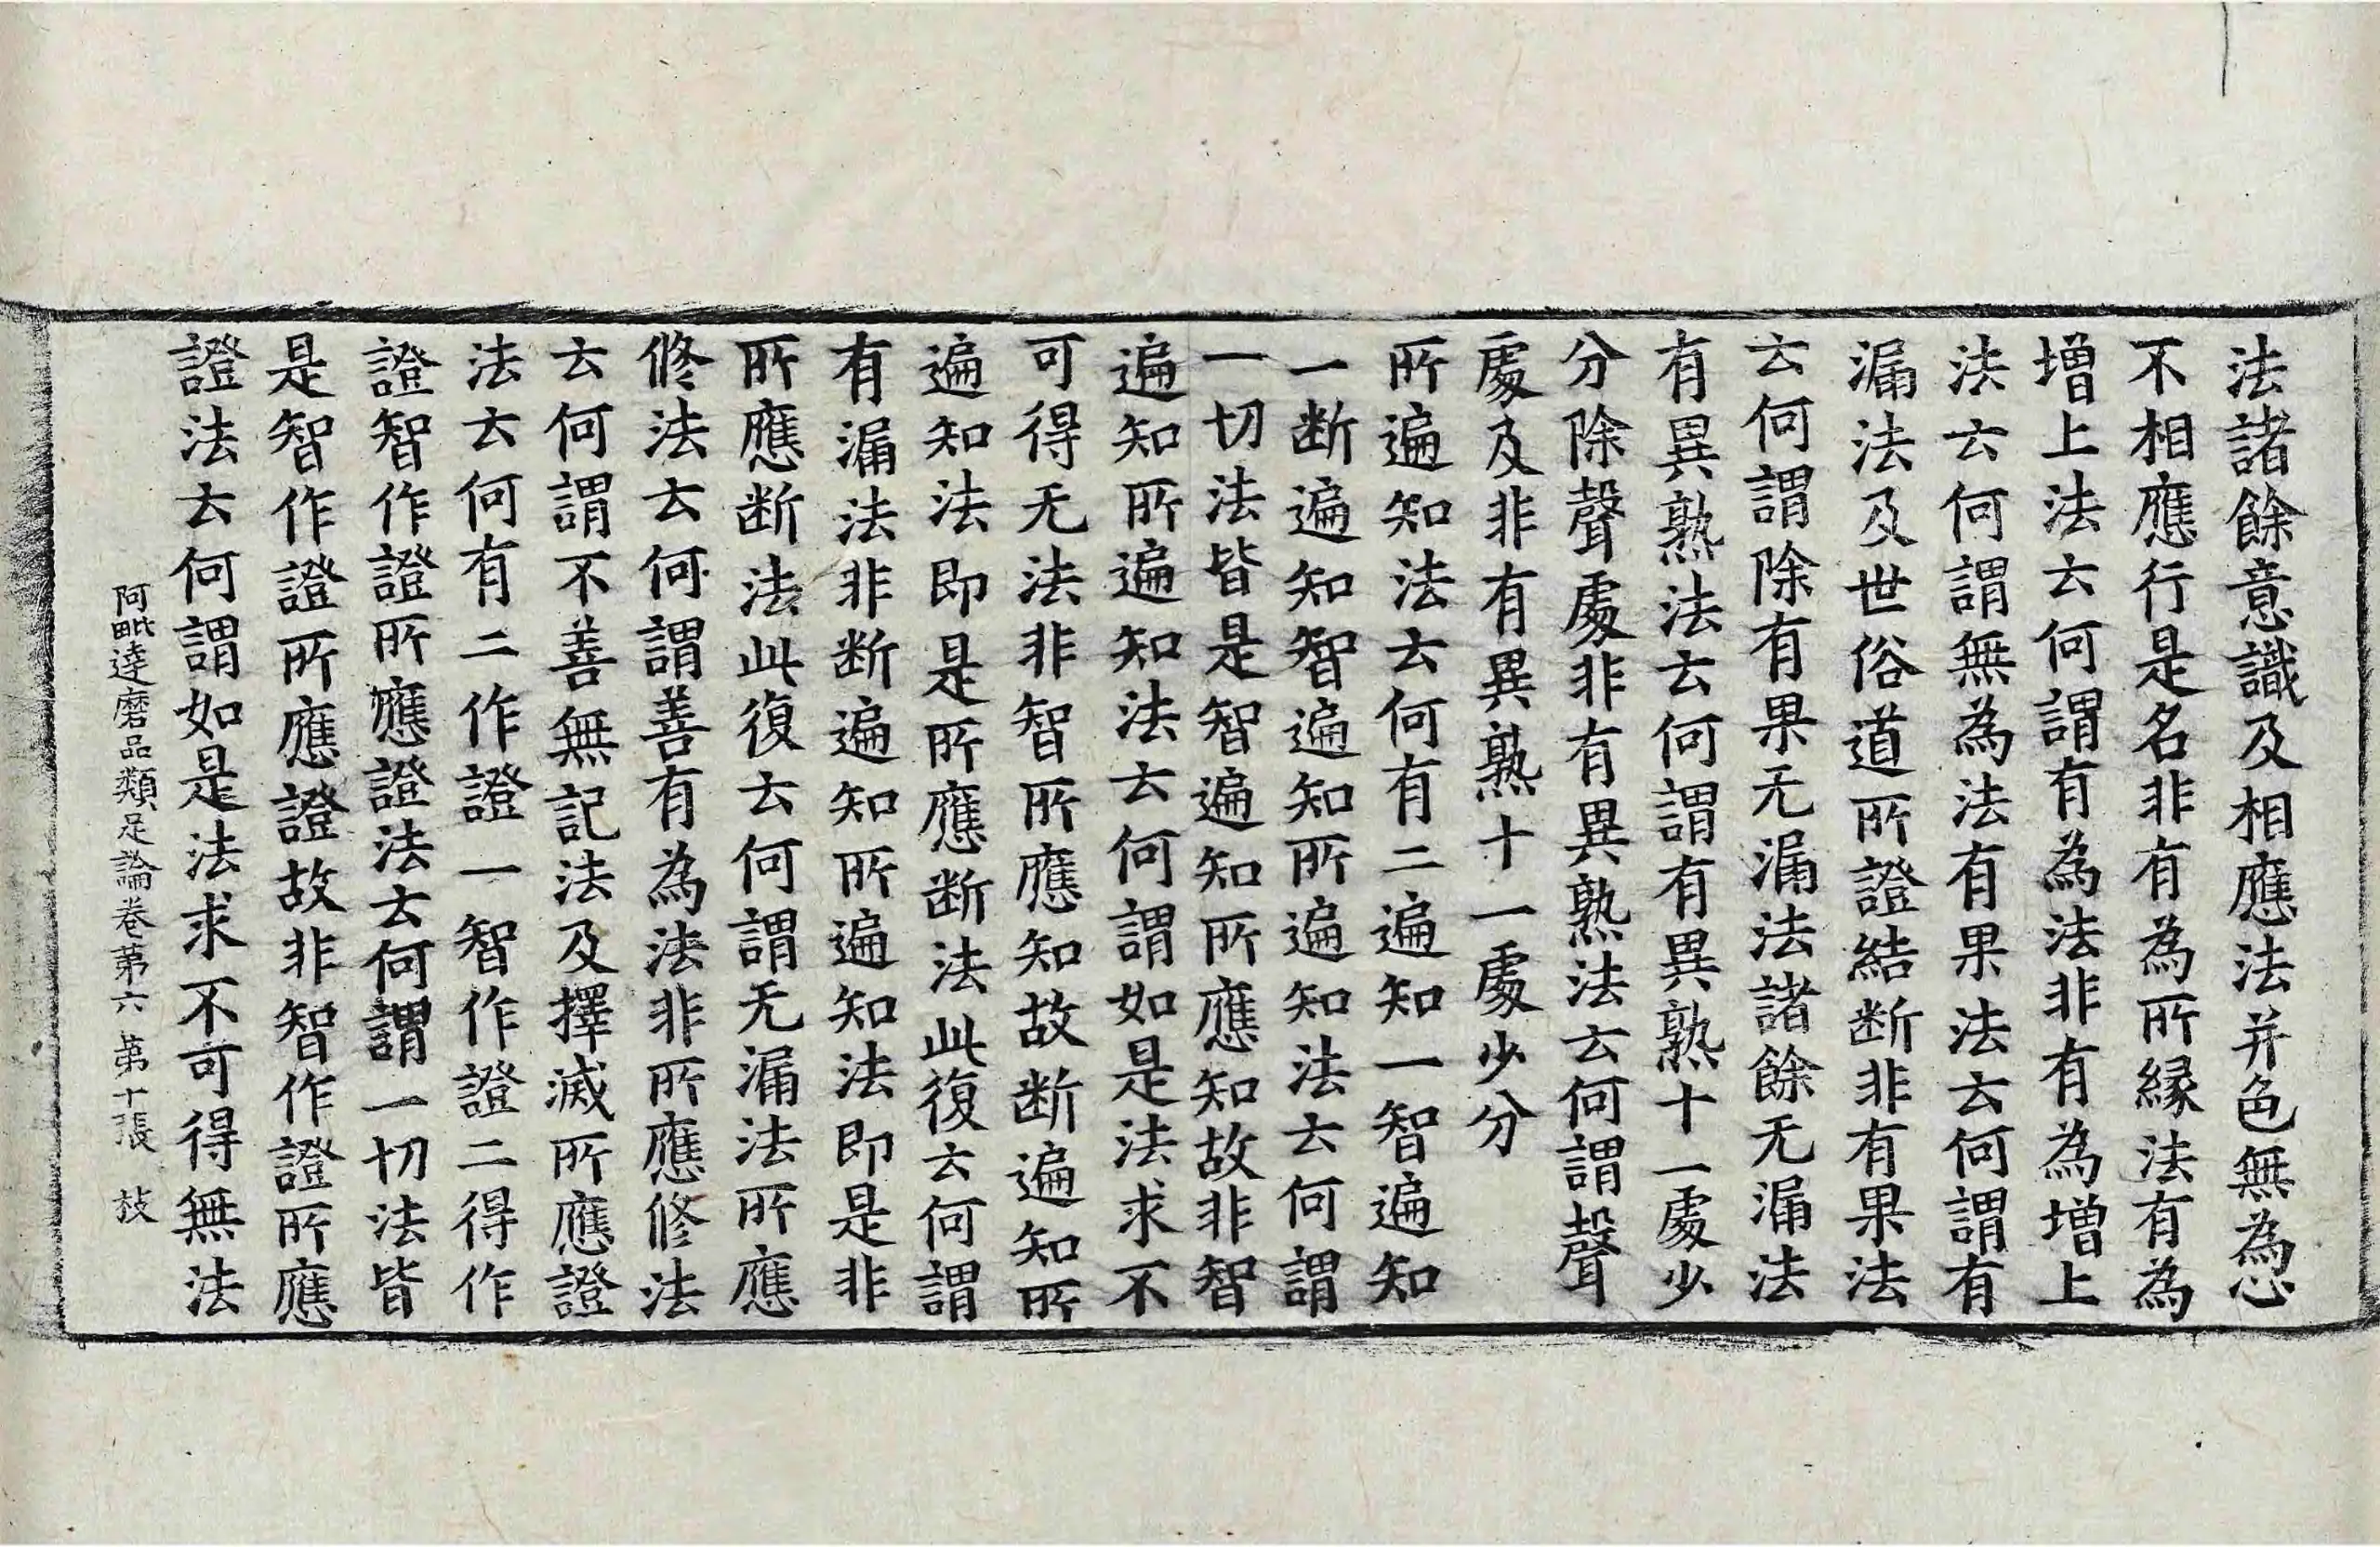 法諸餘意識及相應法并色無為心
不相應行是名非有為所縁法有為
增上法云何謂有為法非有為增上
法云何謂無為法有果法云何謂有
漏法及世俗道所證結断非有果法
云何謂除有果无漏法諸餘无漏法
有異熟法云何謂有異熟十一處少
分除聲處非有異熟法云何謂聲
處及非有異熟十一處少分
所遍知法云何有二遍知一智遍知
一断遍知智遍知所遍知法云何謂
一切法皆是智遍知所應知故非智
遍知所遍知法云何謂如是法求不
可得无法非智所應知故断遍知所
遍知法即是所應断法此復云何謂
有漏法非断遍知所遍知法即是非
所應断法此復云何謂无漏法所應
修法云何謂善有為法非所應修法
云何謂不善無記法及擇滅所應證
法云何有二作證一智作證二得作
證智作證所應證法云何謂一切法皆
是智作證所應證故非智作證所應
證法云何謂如是法求不可得無法
阿毗達磨品類足論卷第六 第十張 枝